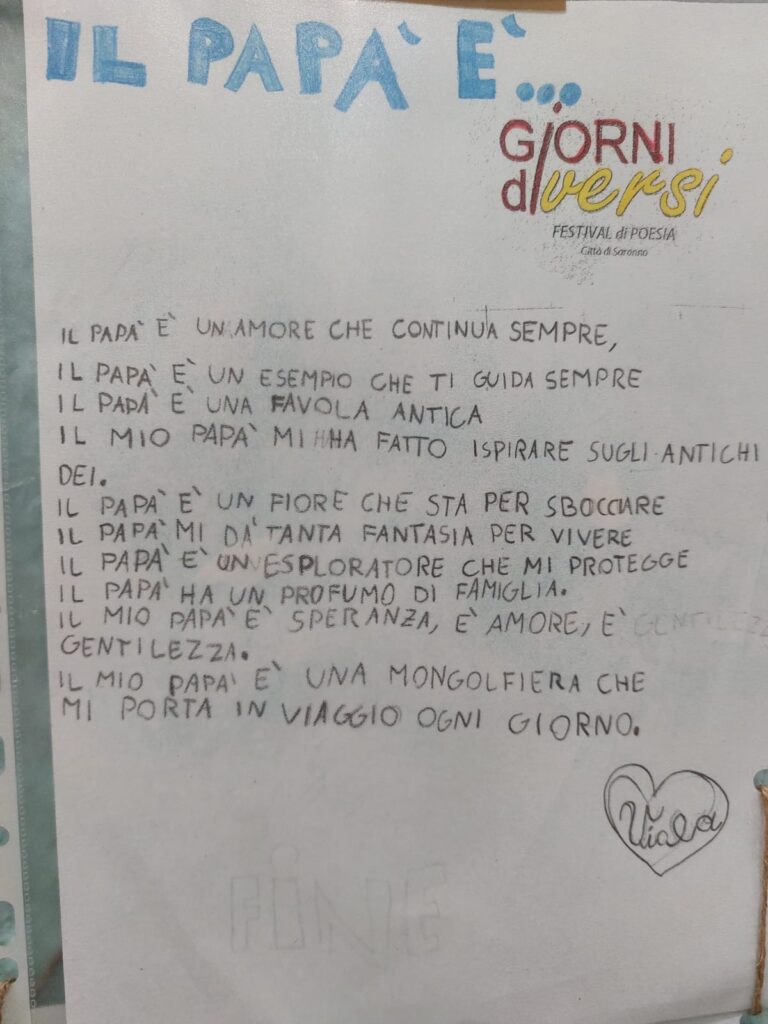 IL PAPÀ È...
GiORNI
diversi
FESTIVAL di POESIA
Città di Saronno
IL PAPÀ È UN AMORE CHE CONTINUA SEMPRE,
IL PAPÀ È UN ESEMPIO CHE TI GUIDA SEMPRE
IL PAPÀ È UNA FAVOLA ANTICA
IL MIO PAPÀ MI HA FATTO ISPIRARE SUGLI ANTICHI
DEI.
IL PAPÀ È UN FIORE CHE STA PER SBOCCIARE
IL PAPÀ MI DÀ TANTA FANTASIA PER VIVERE
IL PAPÀ È UN ESPLORATORE CHE MI PROTEGGE
IL PAPÀ HA UN PROFUMO DI FAMIGLIA.
IL MIO PAPÀ È SPERANZA, È AMORE, È GENTILEZZ
GENTILEZZA.
IL MIO PAPÀ È UNA MONGOLFIERA CHE
MI PORTA IN VIAGGIO OGNI GIORNO.
Viola
FINE